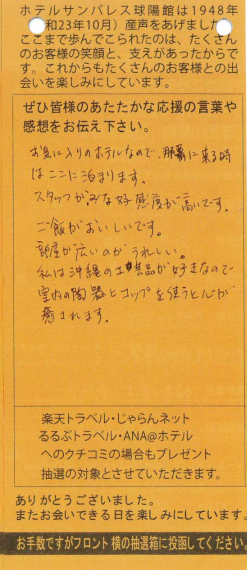 ホテルサンパレス球陽館は1948年
和23年10月）産声をあげました
ここまで歩んでこられたのは、たくさん
のお客様の笑顔と、支えがあったからで
す。これからもたくさんのお客様との出
会いを楽しみにしています。
ぜひ皆様のあたたかな応援の言葉や
感想をお伝え下さい。
お気に入りのホテルなので、那覇に来る時
はここに泊まります。
スタッフがみな好感度が高いです。
ご飯がおいしいです。
部屋が広いのがうれしい。
私は沖縄の工芸品が好きなので
室内の陶器とコップを使うと心が
癒されます。
楽天トラベル・じゃらんネット
るるぶトラベル・ANA@ホテル
へのクチコミの場合もプレゼント
抽選の対象とさせていただきます。
ありがとうございました。
またお会いできる日を楽しみにしています。
お手数ですがフロント横の抽選箱に投函してください。